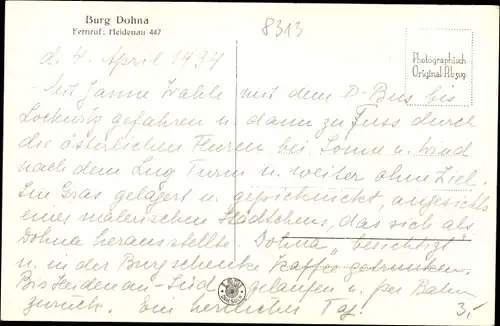 Burg Dohna
Fernruf: Heidenau 447
8313
Photographisch
Original Abzug
d. 4. April 1937
Mit Hanne Wahle mit dem D-Bus bis
Lockwitz gefahren u. dann zu Fuss durch
die österlichen Fluren bei Sonne u. Wind
nach dem Lug Turm u. weiter ohne Ziel.
Im Gras gelagert u. gepicknickt, angesichts
eines malerischen Städtchens, das sich als
Dohna herausstellte. Dohna "besichtigt"
u. in der Burgschenke Kaffee getrunken.
Bis Heidenau-Süd gelaufen u. per Bahn
zurück. Ein herrlicher Tag!
3,-